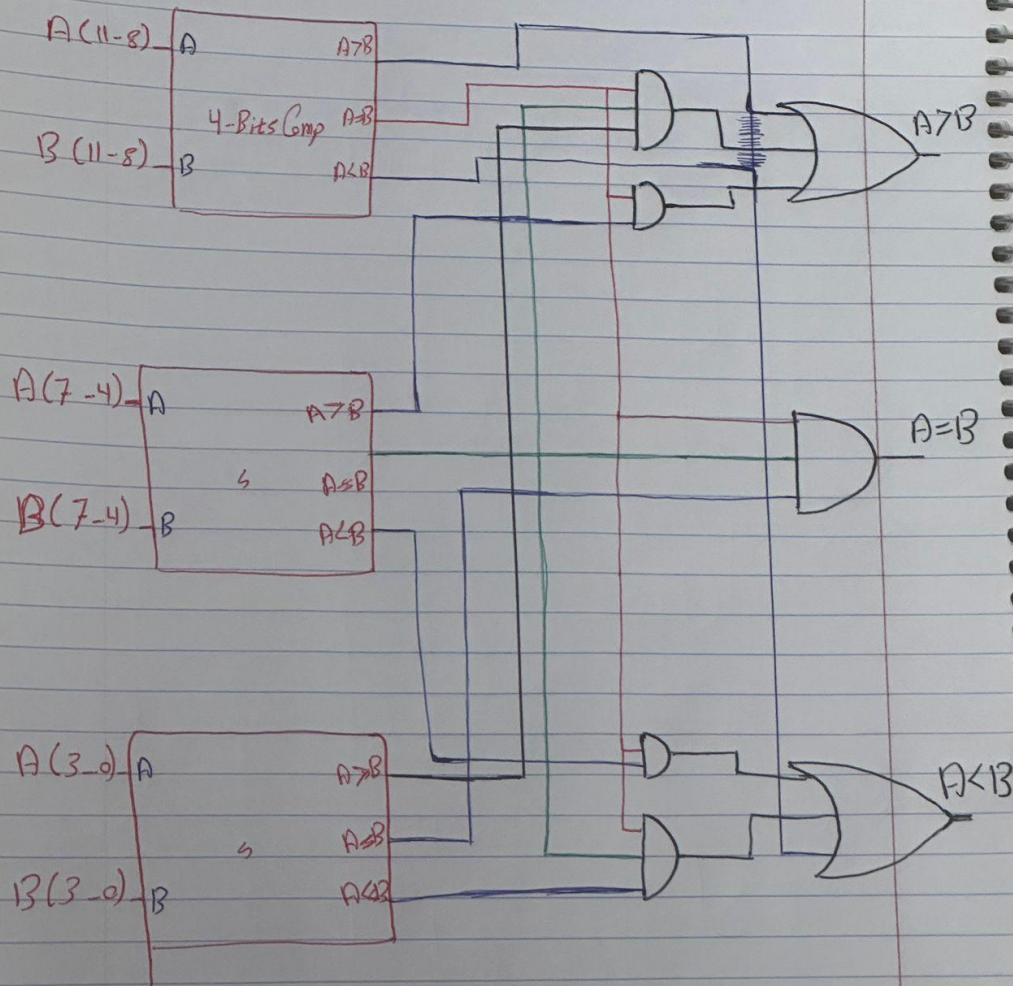 A(11-8)
A
A>B
4-Bits Comp
A=B
B(11-8)
B
A<B
A>B
A(7-4)
A
A>B
A=B
B(7-4)
B
A<B
A=B
A(3-0)
A
A>B
A=B
B(3-0)
B
A<B
A<B